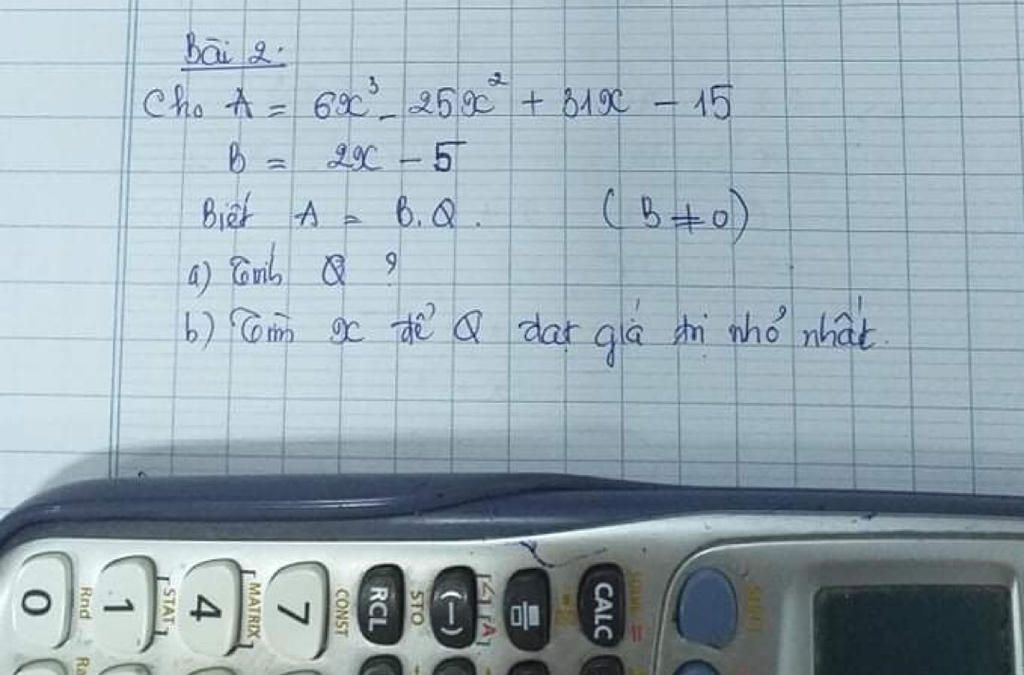 Bài 2:
Cho A = 6x³ - 25x² + 31x - 15
B = 2x - 5
Biết A = B.Q. (B ≠ 0)
a) Tính Q ?
b) Tìm x để Q đạt giá trị nhỏ nhất.
CALC
(-)
RCL
7
4
1
0
CONST
STO
[MATRIX]
[STAT]
Rnd
[∠] [A]